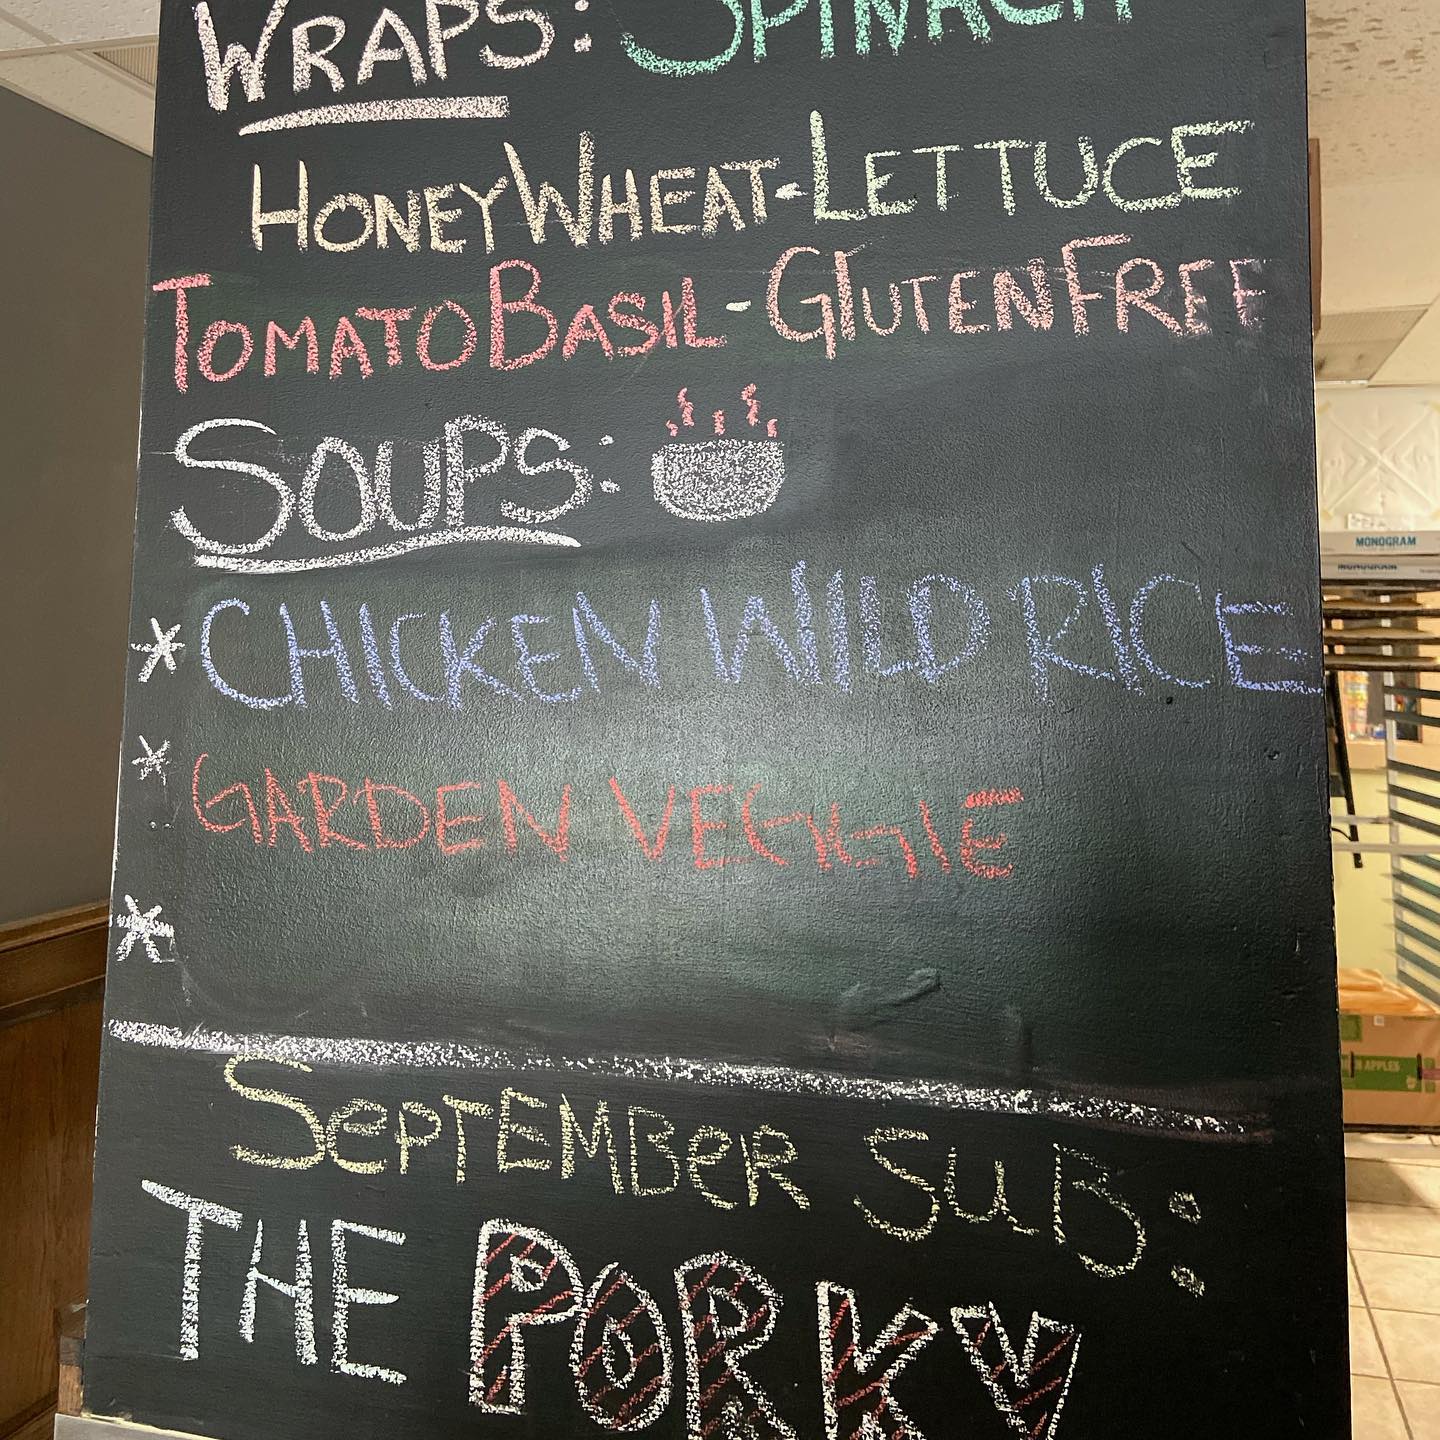 WRAPS: SPINACH
HONEY WHEAT-LETTUCE
TOMATO BASIL-GLUTEN FREE
SOUPS:
* CHICKEN WILD RICE
* GARDEN VEGGIE
*
SEPTEMBER SUB:
THE PORKY
MONOGRAM
MONOGRAM
APPLES